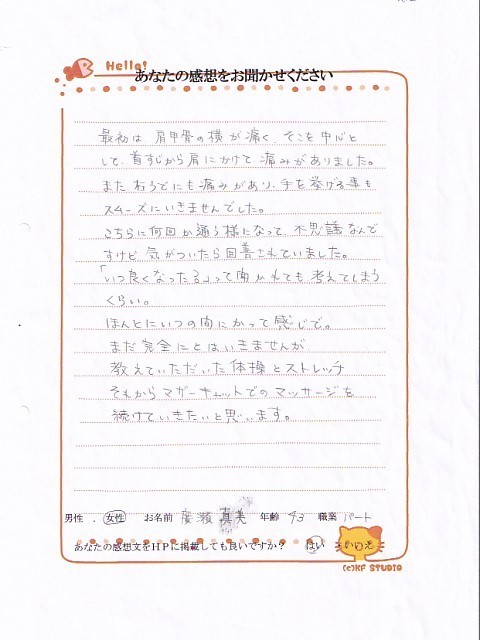 Hello!
あなたの感想をお聞かせください
最初は 肩甲骨の横が痛く、そこを中心と
して、首すじから肩にかけて 痛みがありました。
また にも痛みがあり、手を挙げる事も
スムーズにいきませんでした。
こちらに何回か通う様になって、不思議なんで
すけど 気がついたら改善されていました。
「いつ良くなったる」って聞かれても 考えてしまう
くらい。
ほんとにいつの間にかって感じで。
まだ完全にとはいきませんが
教えていただいた体操とストレッチ
それからマガーキャットでのマッサージを
続けていきたいと思います。
男性 . 女性 お名前 廣瀬 真美 年齢 43 職業 パート
あなたの感想文をHPに掲載しても良いですか? はい いいえ
(c)KF STUDIO